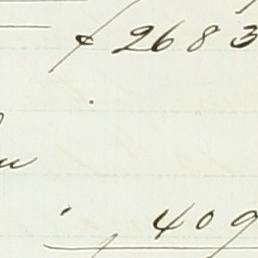 £ 2683
409